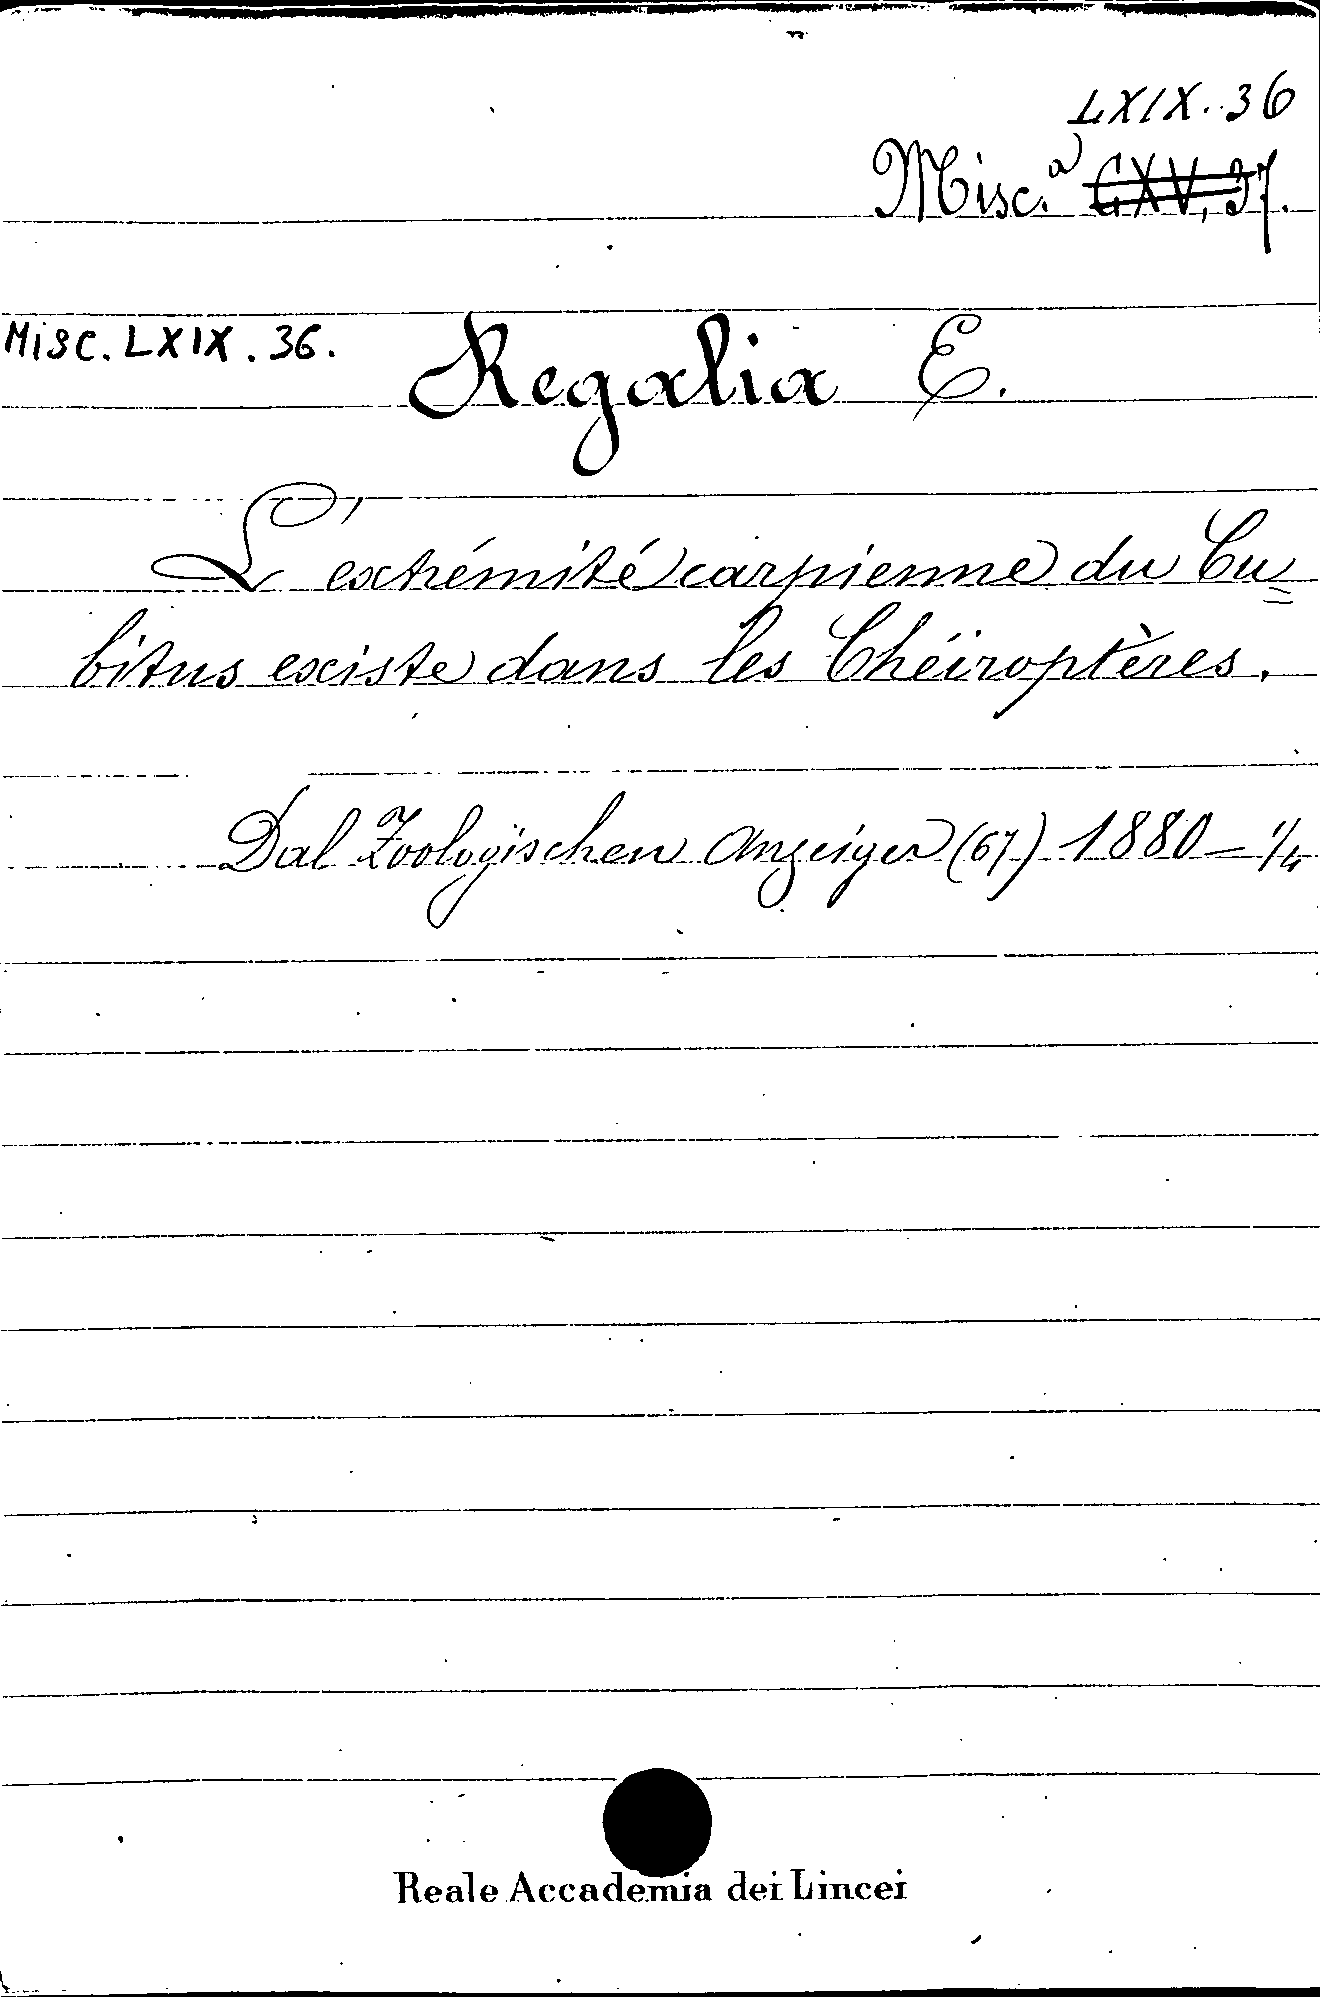 LXIX. 36
Misc.a CXV, 37.
Misc. LXIX. 36.
Regalia E.
L'extrémité carpienne du Cu=
bitus existe dans les Chéiroptères.
Dal Zoologischen Anzeiger (67) 1880 — 1/4
Reale Accademia dei Lincei